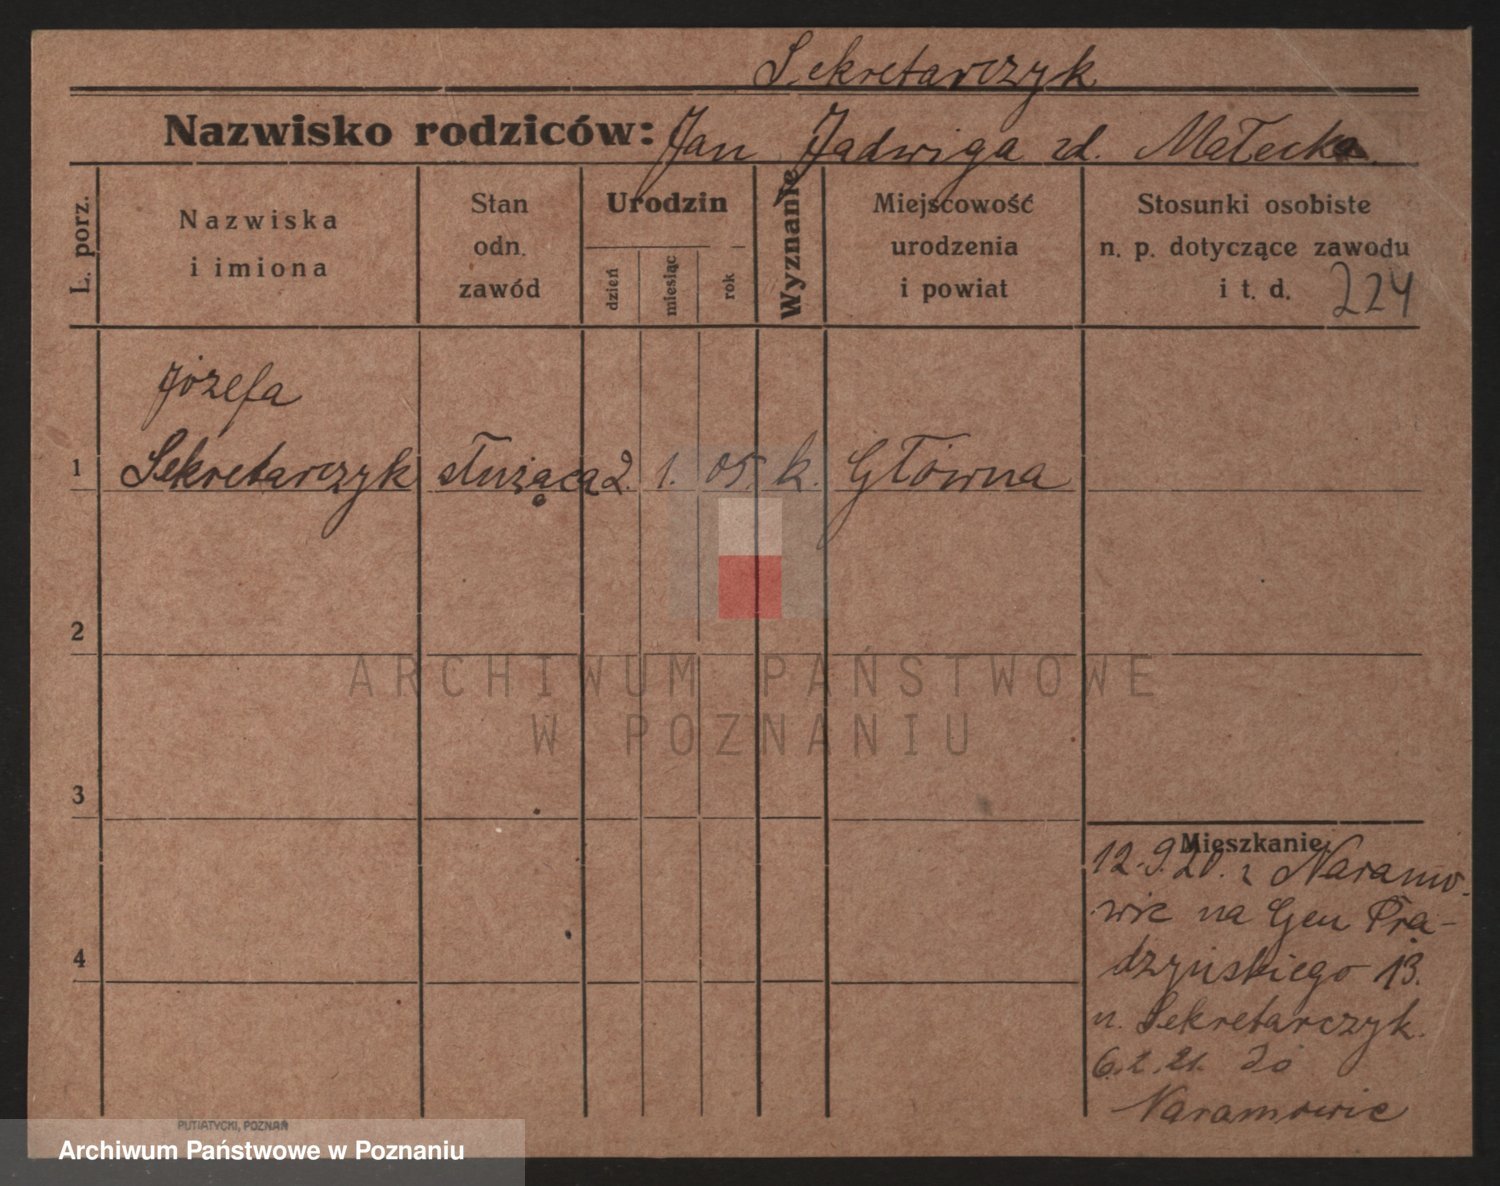 Sekretarczyk
Nazwisko rodziców: Jan Jadwiga zd. Małecka.
L. porz.
Nazwiska
i imiona
Stan
odn.
zawód
Urodzin
dzień
miesiąc
rok
Wyznanie
Miejscowość
urodzenia
i powiat
Stosunki osobiste
n. p. dotyczące zawodu
i t. d.
224
Józefa
1 Sekretarczyk służąca 2. 1. 05. k. Główna
2
3
4
Mieszkanie
12.9.20. z Naramo-
wic na Gen Prą-
dzyńskiego 13.
u. Sekretarczyk.
6.2.21. do
Naramowic
PUTIATYCKI, POZNAŃ
ARCHIWUM PAŃSTWOWE
W POZNANIU
Archiwum Państwowe w Poznaniu